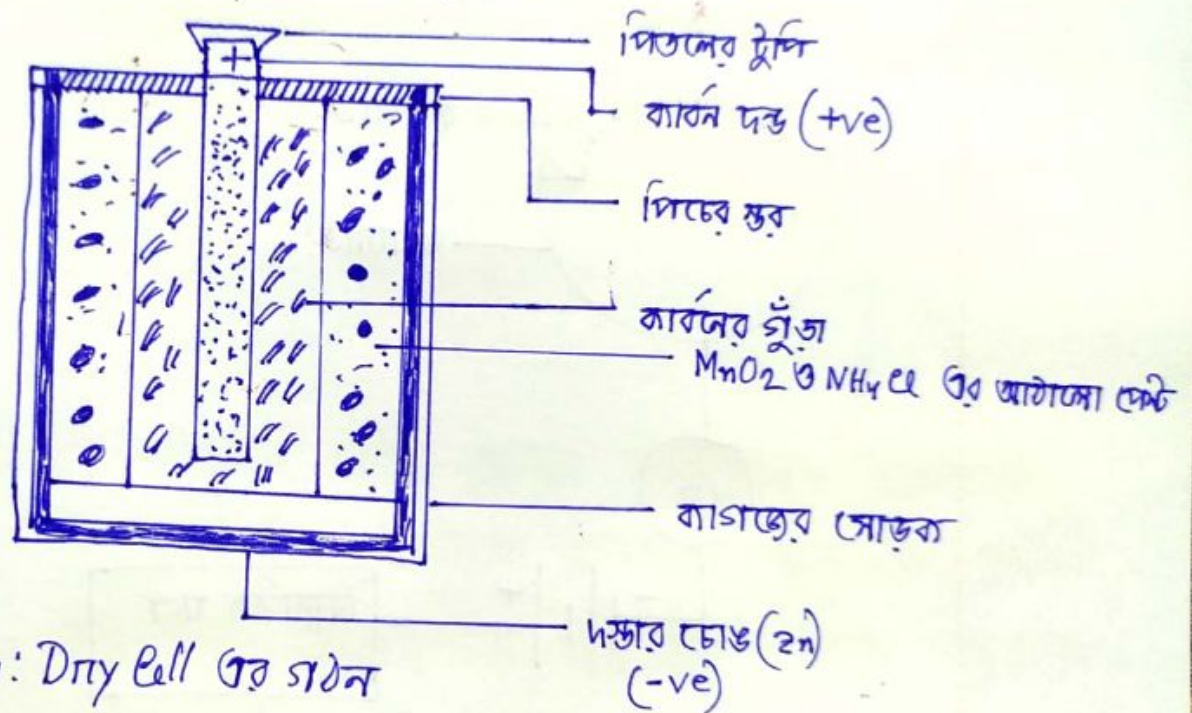 পিতলের টুপি
+
কার্বন দন্ড (+ve)
পিচের স্তর
কার্বনের গুঁড়া
MnO2 ও NH4Cl এর আঠালো পেস্ট
কাগজের মোড়ক
দস্তার চোঙ (Zn)
(-ve)
: Dry Cell এর গঠন